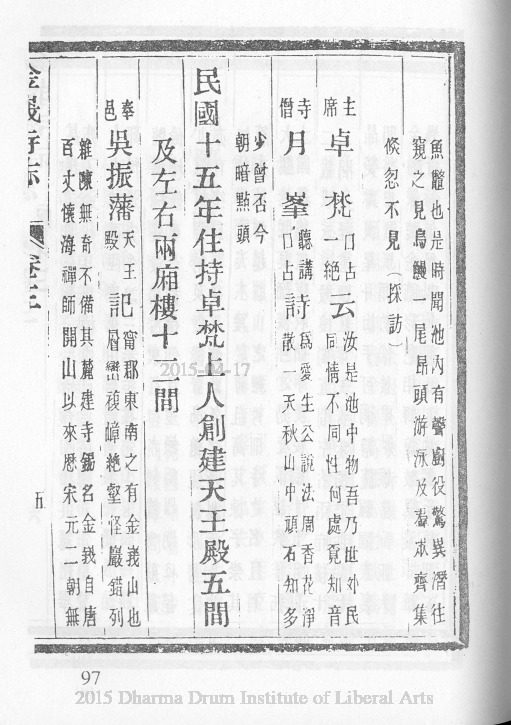 魚鼈也是時聞池內有聲廚役驚異潛往
窺之見烏鰻一尾昂頭游泳及衆齊集
倐忽不見(採訪)
主席卓梵口占一絕云汝是池中物吾乃世外民同情不同性何處覓知音
寺僧月峯聽講口占詩為愛生公說法周香花淨散一天秋山中頑石知多
少曾否今朝暗點頭
民國十五年住持卓梵上人創建天王殿五間
及左右兩廂樓十二間
奉邑吳振藩天王殿記甯郡東南之有金峩山也層巒複嶂絕壑怪巖錯列
雜陳無奇不備其麓建寺錫名金峩自唐
百丈懷海禪師開山以來歷宋元二朝無
金峩寺志
卷上
五
97
2015-04-17
2015 Dharma Drum Institute of Liberal Arts